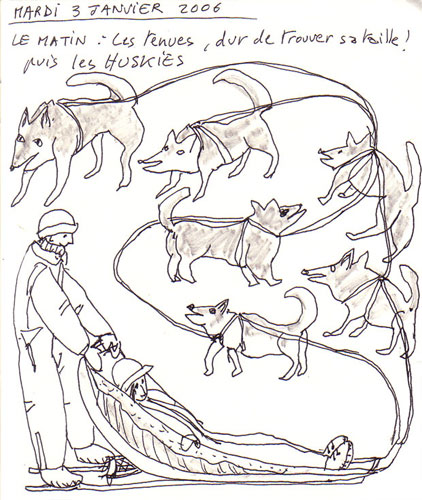 MARDI 3 JANVIER 2006
LE MATIN : Les tenues, dur de trouver sa taille!
puis les HUSKIES